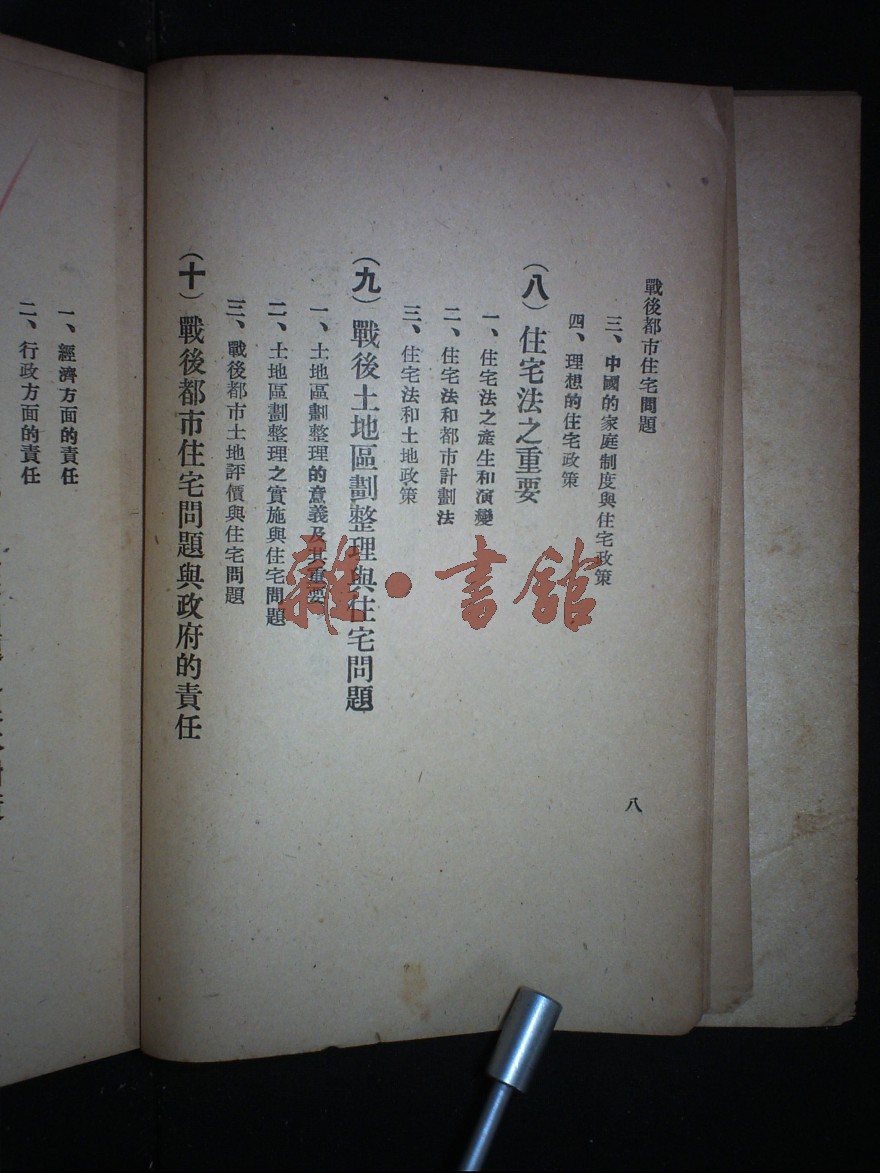 戰後都市住宅問題
三、中國的家庭制度與住宅政策
四、理想的住宅政策
（八）住宅法之重要
一、住宅法之產生和演變
二、住宅法和都市計劃法
三、住宅法和土地政策
（九）戰後土地區劃整理與住宅問題
一、土地區劃整理的意義及其重要
二、土地區劃整理之實施與住宅問題
三、戰後都市土地評價與住宅問題
（十）戰後都市住宅問題與政府的責任
八
一、經濟方面的責任
二、行政方面的責任
雜·書館